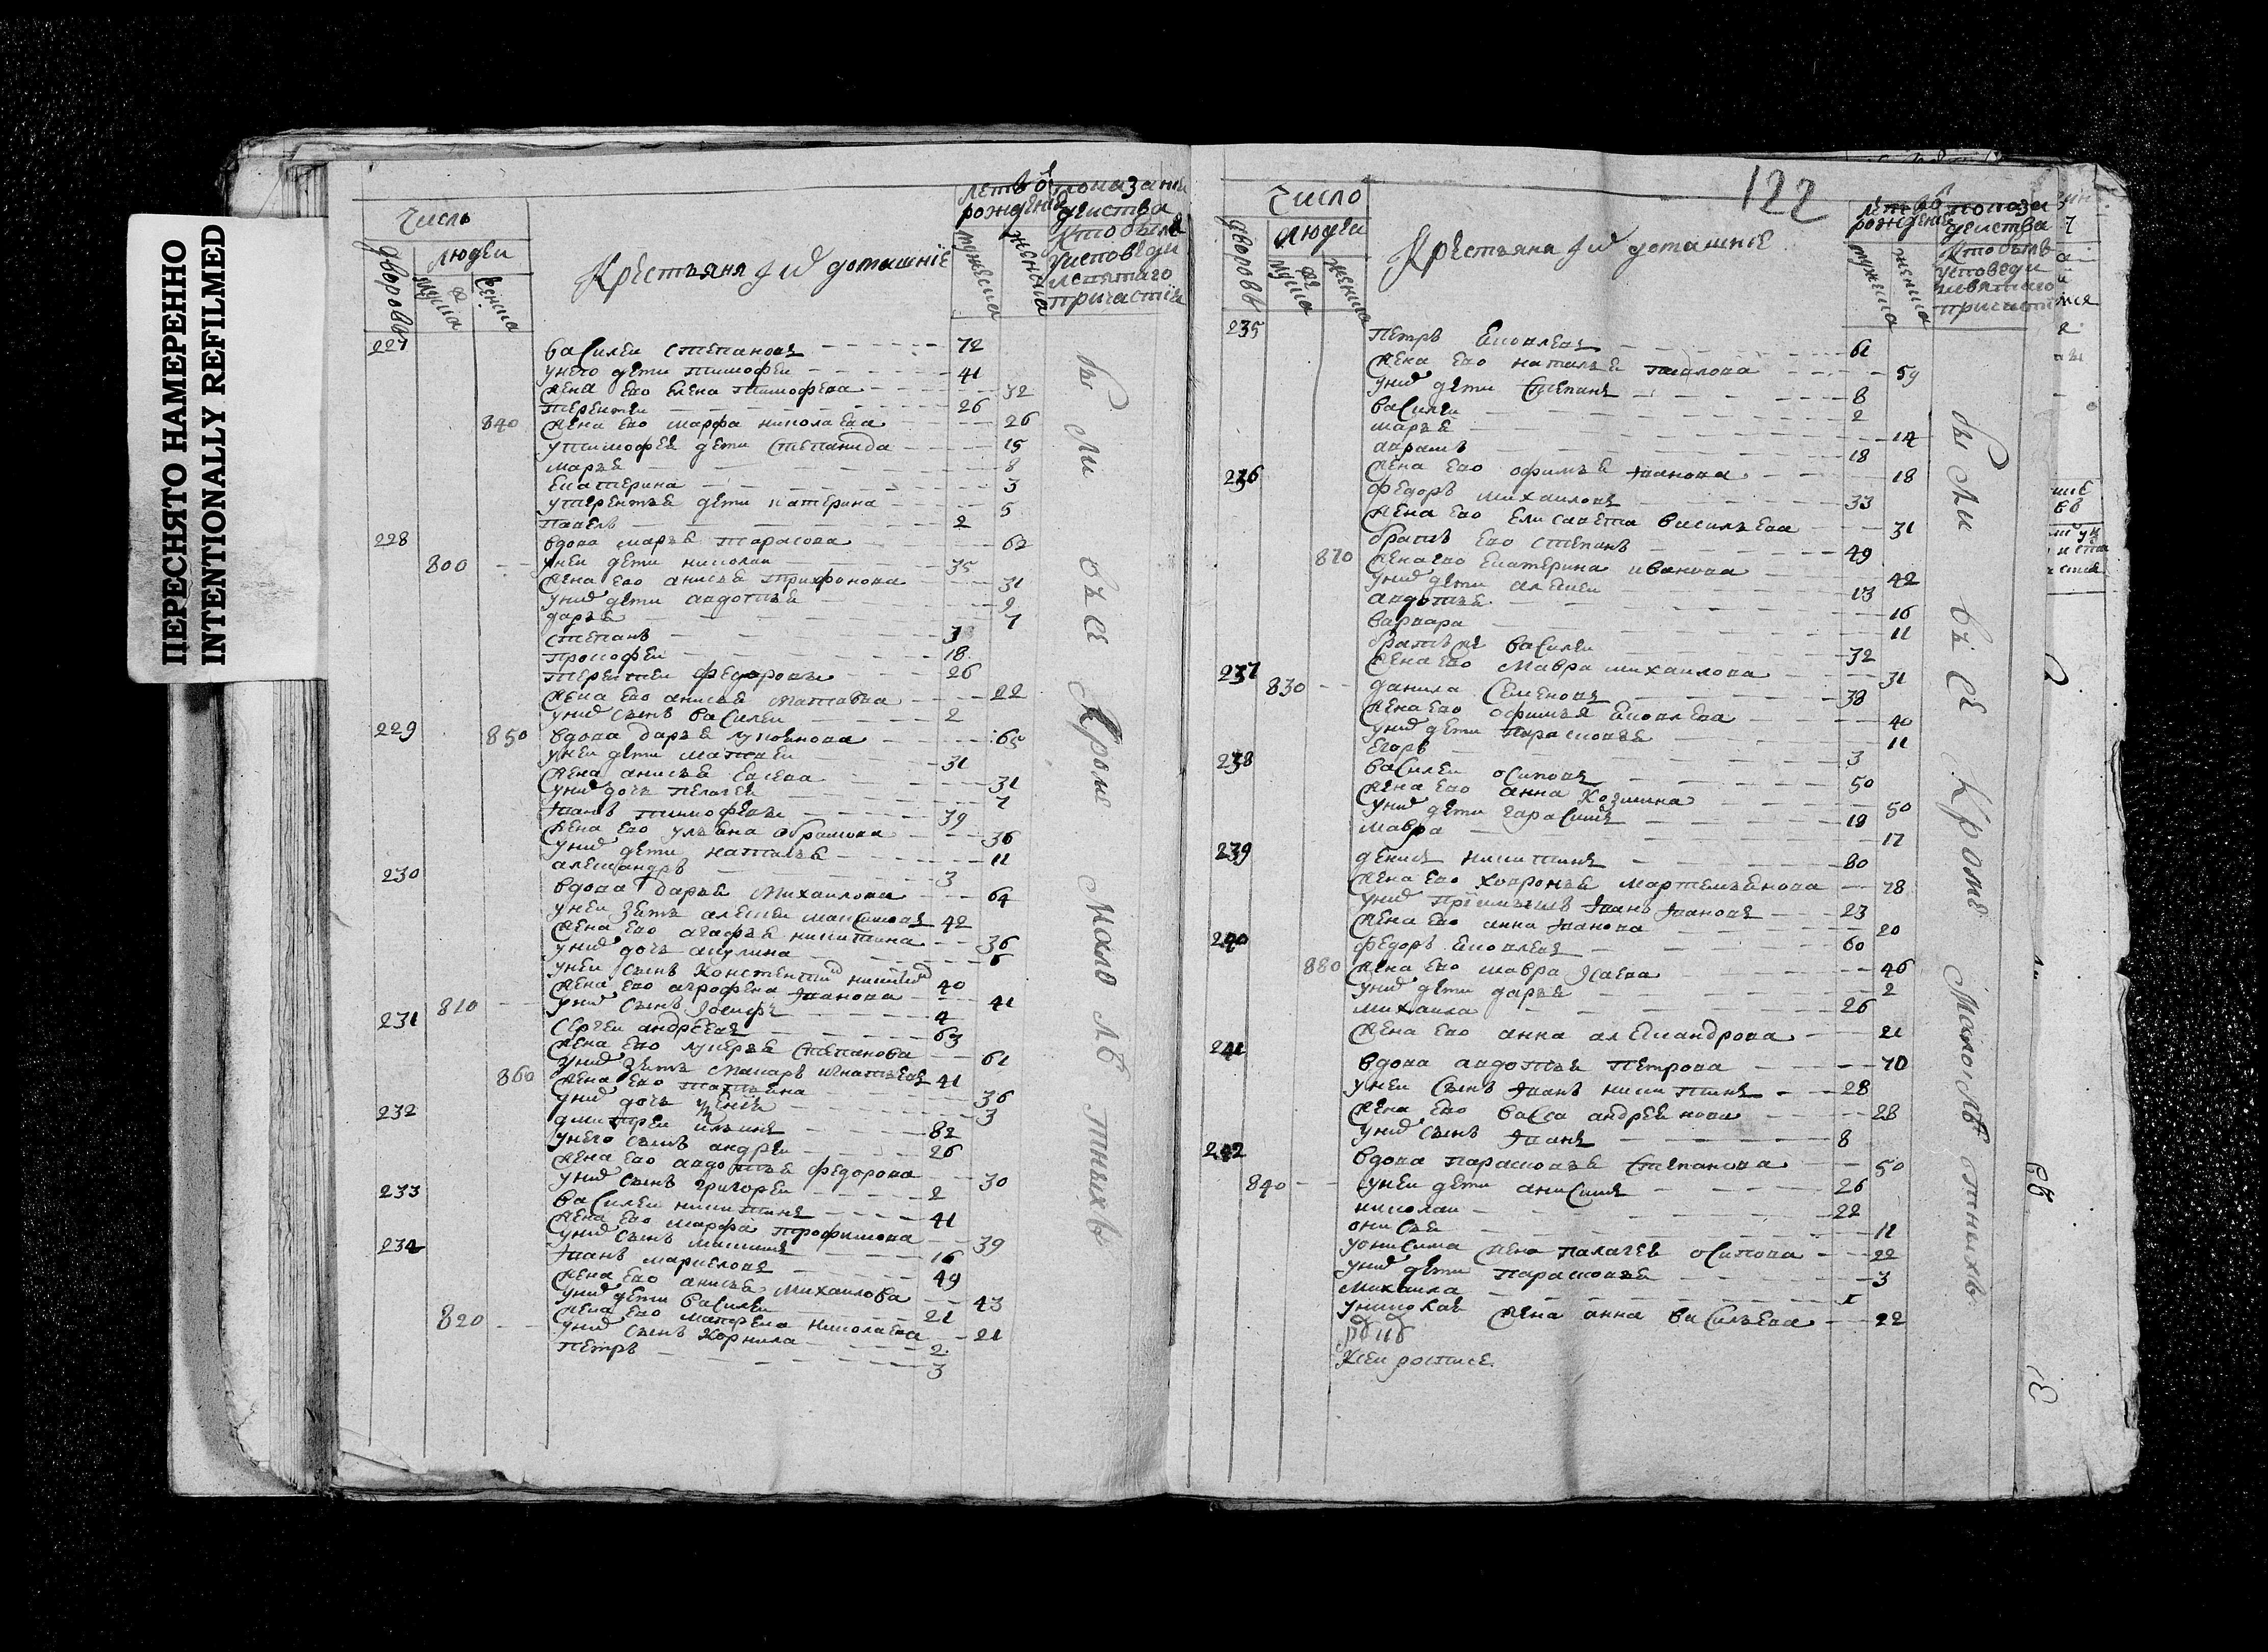 ПЕРЕСНЯТО НАМЕРЕННО
INTENTIONALLY REFILMED
Число
дворовъ
людеи
мужеска
женска
Крестьяня и домашніе
летъ рождения
мужеска
женска
показание действа
кто былъ
у исповеди
и святаго
причастия
227 василеи степановъ 72
у него дети тимофеи 41
жена ево елена тимофеева 32
терентеи 26
840 жена ево марфа николаева 26
у тимофея дети степанида 15
марья 8
екатерина 3
у терентья дети катерина 5
павелъ 2
228 вдова марья тарасова 62
800 у неи дети николаи 35
жена ево анисья трифонова 31
у них дети авдотья 9
дарья 7
степанъ 3
прокофеи 18
терентеи федоровъ 26
жена ево анисья матвеева 22
у них сынъ василеи 2
229 850 вдова дарья лукоянова 65
у неи дети матвеи 31
жена анисья евсеева 31
у них дочь пелагея 7
иванъ тимофеевъ 39
жена ево ульяна абрамова 36
у них дети наталья 11
александръ 3
230 вдова дарья михаилова 64
у неи зять алексеи максимовъ 42
жена ево агафья никитина 36
у них дочь акулина 6
у неи сынъ констентин никитин 40
жена ево агрофена иванова 41
810 у них сынъ иосифъ 4
231 сергеи андреевъ 63
жена ево лукерья степанова 61
у них зять макаръ игнатьевъ 41
860 жена ево татьяна 36
у них дочь 3
232 дмитреи ильинъ 82
у него сынъ андреи 26
жена ево авдотья федорова 30
у них сынъ григореи 2
233 василеи никитинъ 41
жена ево марфа трофимова 39
у них сынъ 16
234 иванъ маркеловъ 49
жена ево анисья михаилова 43
у них дети василеи 21
жена ево матрена николаева 21
820 у них сынъ корнила 2
петръ 3
были все кроме малолетныхъ
122
Число
дворовъ
людеи
мужеска
женска
Крестьяня и домашніе
летъ рождения
мужеска
женска
показание действа
кто былъ
у исповеди
и святаго
235 петръ яковлевъ 61
жена ево наталья павлова 59
у них дети степанъ 8
василеи 2
марья 14
аврамъ 18
жена ево офимья иванова 18
236 федоръ михаиловъ 33
жена ево елисавета васильева 31
братъ ево степанъ 49
870 жена ево екатерина иванова 42
у них дети алексеи 13
авдотья 16
варвара 11
братъ же василеи 32
жена ево мавра михаилова 31
237 830 данила семеновъ 38
жена ево офимья яковлева 40
у них дети парасковья 11
егоръ 3
238 василеи осиповъ 50
жена ево анна козмина 50
у них дети гарасимъ 19
мавра 17
239 денисъ никитинъ 80
жена ево ховронья мартемьянова 78
у них приимышъ иванъ ивановъ 23
жена ево анна иванова 20
240 федоръ яковлевъ 60
880 жена ево мавра исаева 46
у них дети дарья 2
михаила 26
жена ево анна александрова 21
241 вдова авдотья петрова 70
у неи сынъ иванъ никитинъ 28
жена ево васса андреянова 28
у них сынъ иванъ 8
242 вдова парасковья степанова 50
840 у неи дети анисимъ 26
николаи 22
онисья 11
у онисима жена палагея осипова 22
у них дети парасковья 3
михаила 1
у николая жена анна васильева 22
к сеи росписе
были все кроме малолетныхъ